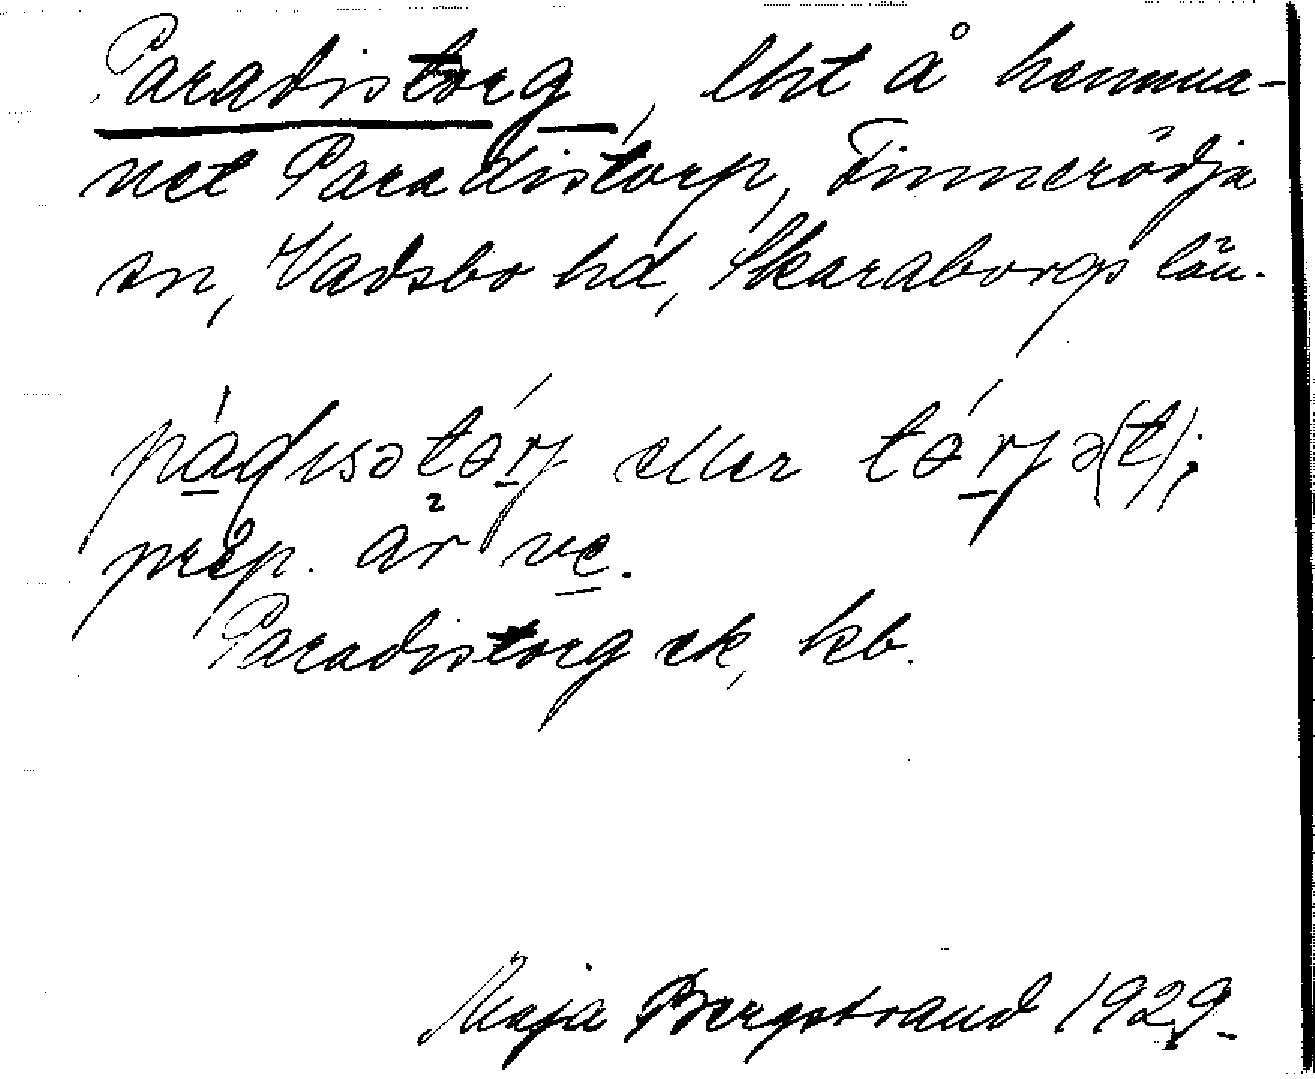 Paradistorg, lht å hemma-
net Paradistorp, Finnerödja
sn, Vadsbo hd, Skaraborgs län.
pádɩsətórj eller tórjə(t);
prep. är ve.
Paradistorg ek, kb.
Maja Bergstrand 1929.